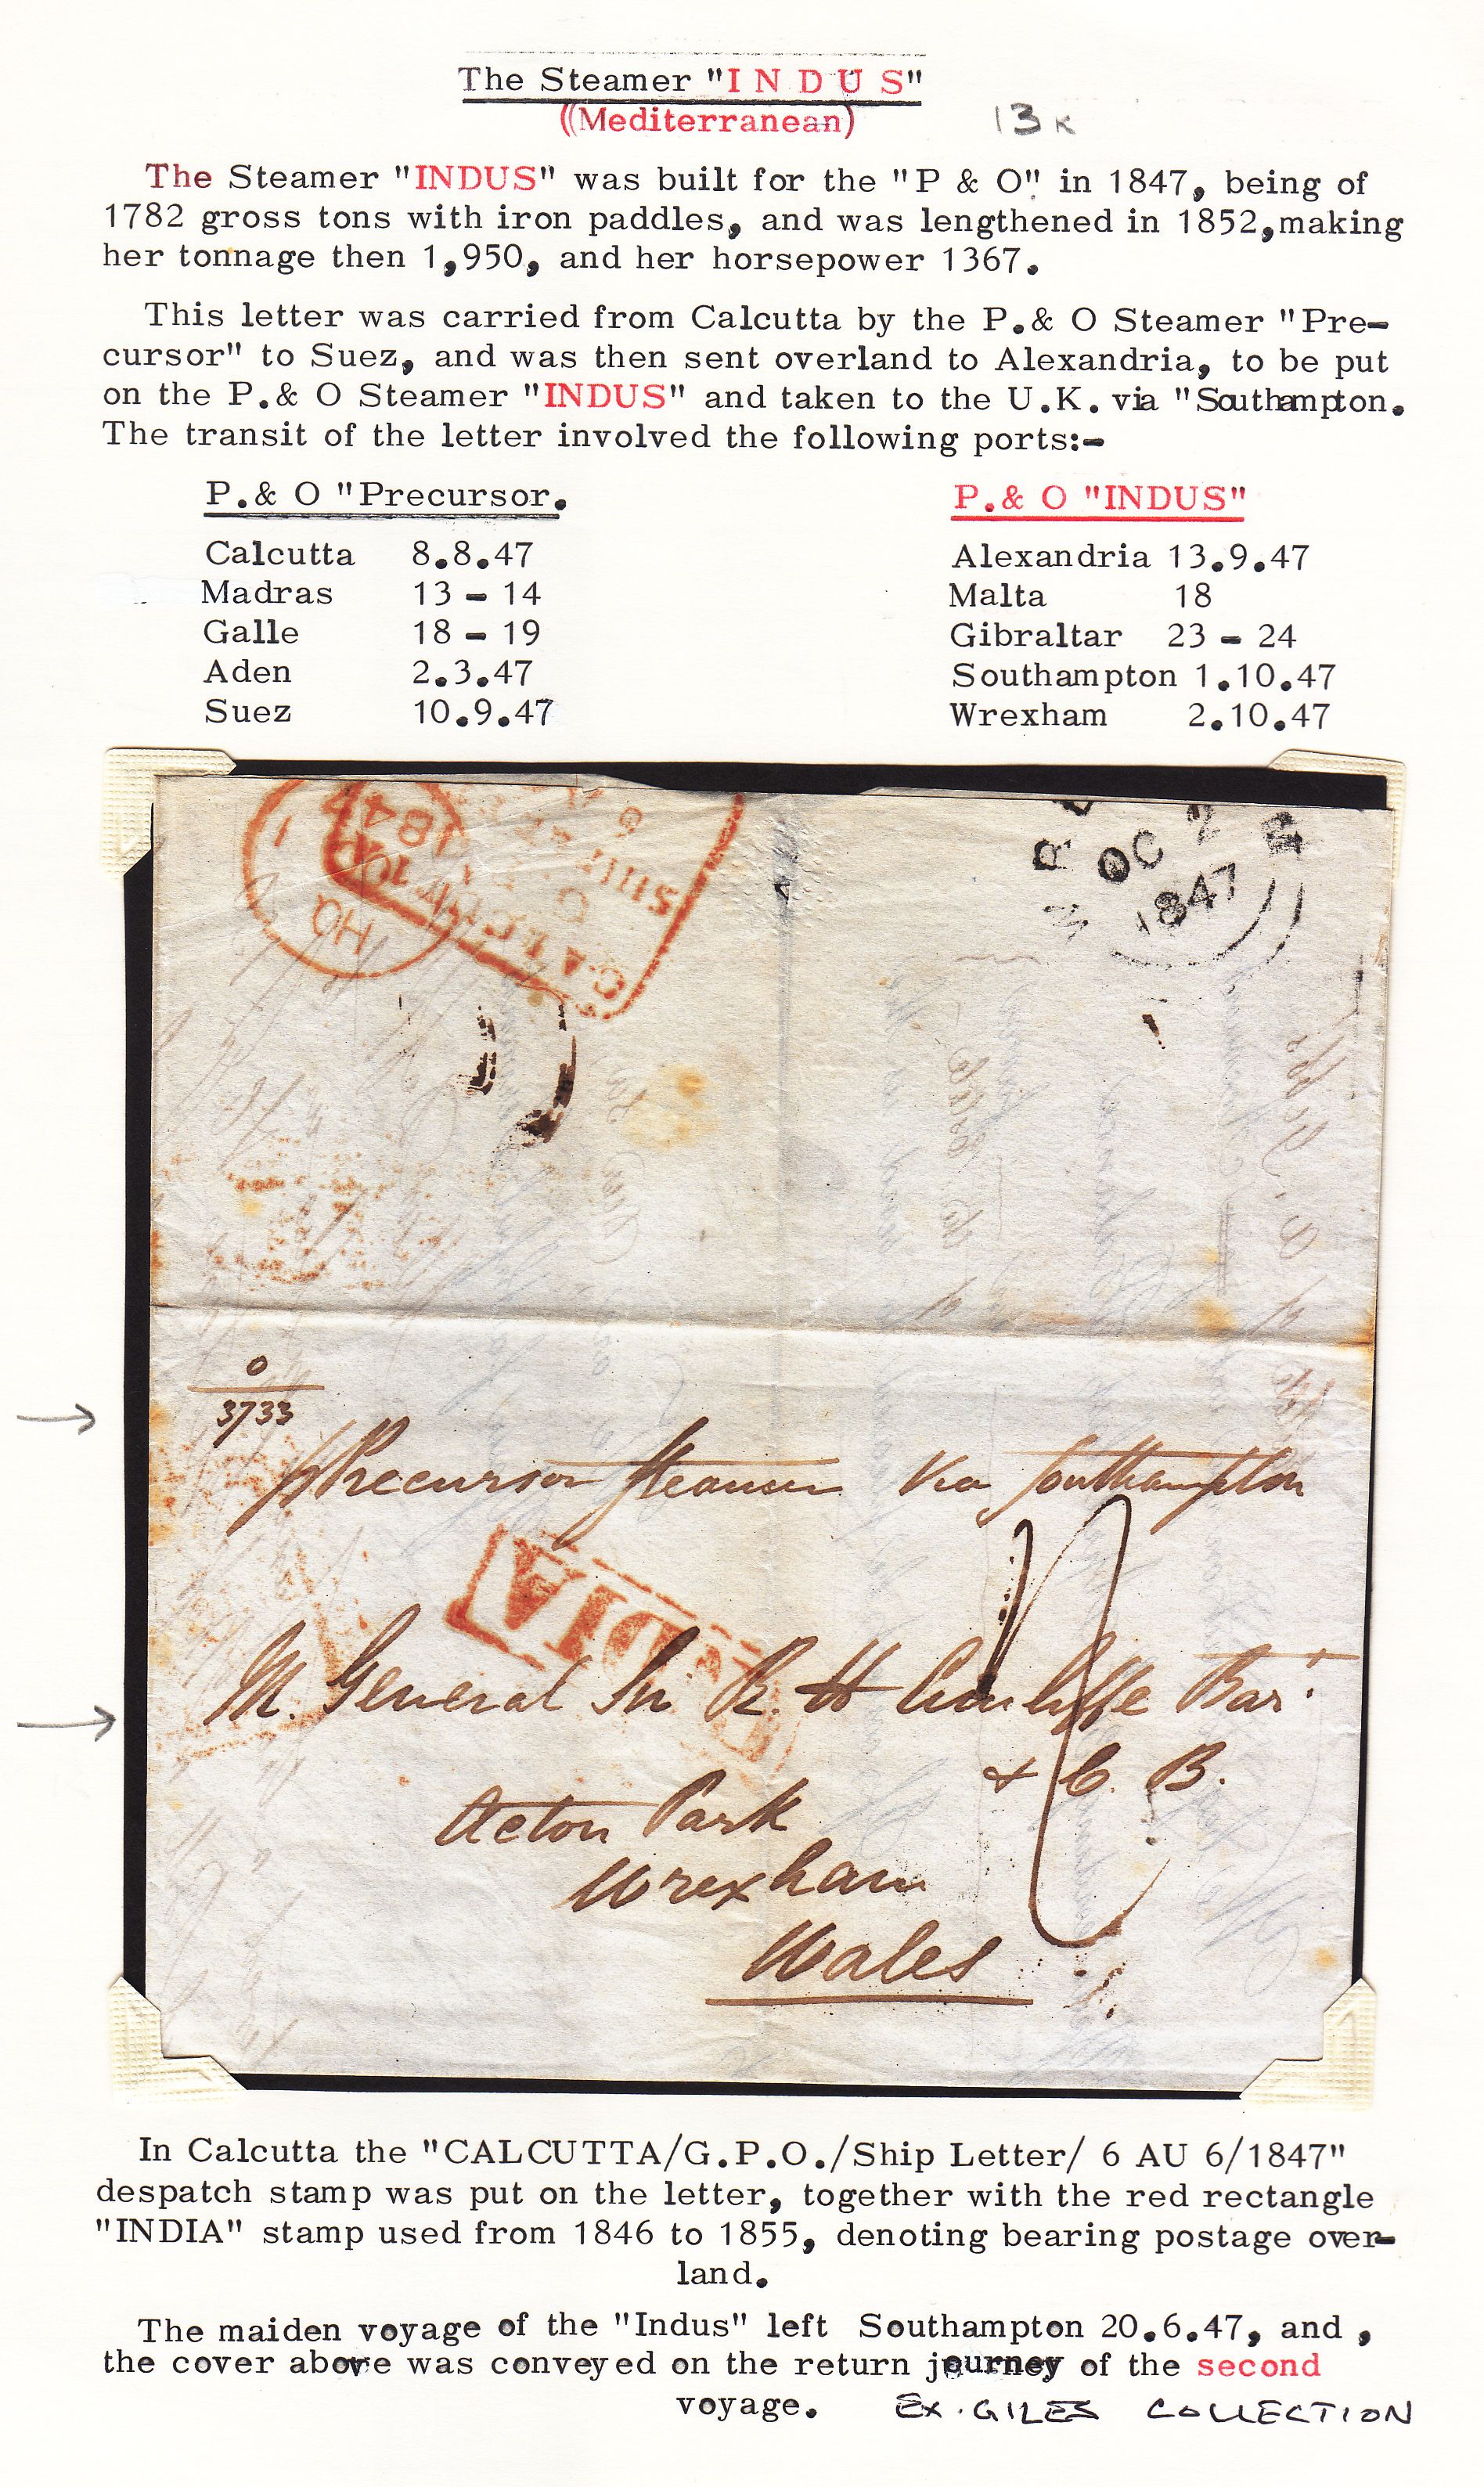 The Steamer "I N D U S"
((Mediterranean)
13
The Steamer "INDUS" was built for the "P & O" in 1847, being of
1782 gross tons with iron paddles, and was lengthened in 1852,making
her tonnage then 1,950, and her horsepower 1367.
This letter was carried from Calcutta by the P.& O Steamer "Pre-
cursor" to Suez, and was then sent overland to Alexandria, to be put
on the P.& O Steamer "INDUS" and taken to the U.K. via "Southampton.
The transit of the letter involved the following ports:-
P.& O "Precursor.
Calcutta 8.8.47
Madras 13 - 14
Galle 18 - 19
Aden 2.3.47
Suez 10.9.47
P.& O "INDUS"
Alexandria 13.9.47
Malta 18
Gibraltar 23 - 24
Southampton 1.10.47
Wrexham 2.10.47
1847
HQ
CALCUTTA
SHIP
OC 2
1847
0
3733
Precursor Steamer Via Southampton
INDIA
M. General Sir R. H Cunliffe Bart
& C. B.
Acton Park
Wrexham
Wales
In Calcutta the "CALCUTTA/G.P.O./Ship Letter/ 6 AU 6/1847"
despatch stamp was put on the letter, together with the red rectangle
"INDIA" stamp used from 1846 to 1855, denoting bearing postage over-
land.
The maiden voyage of the "Indus" left Southampton 20.6.47, and ,
the cover above was conveyed on the return journey of the second
voyage.
EX. GILES COLLECTION